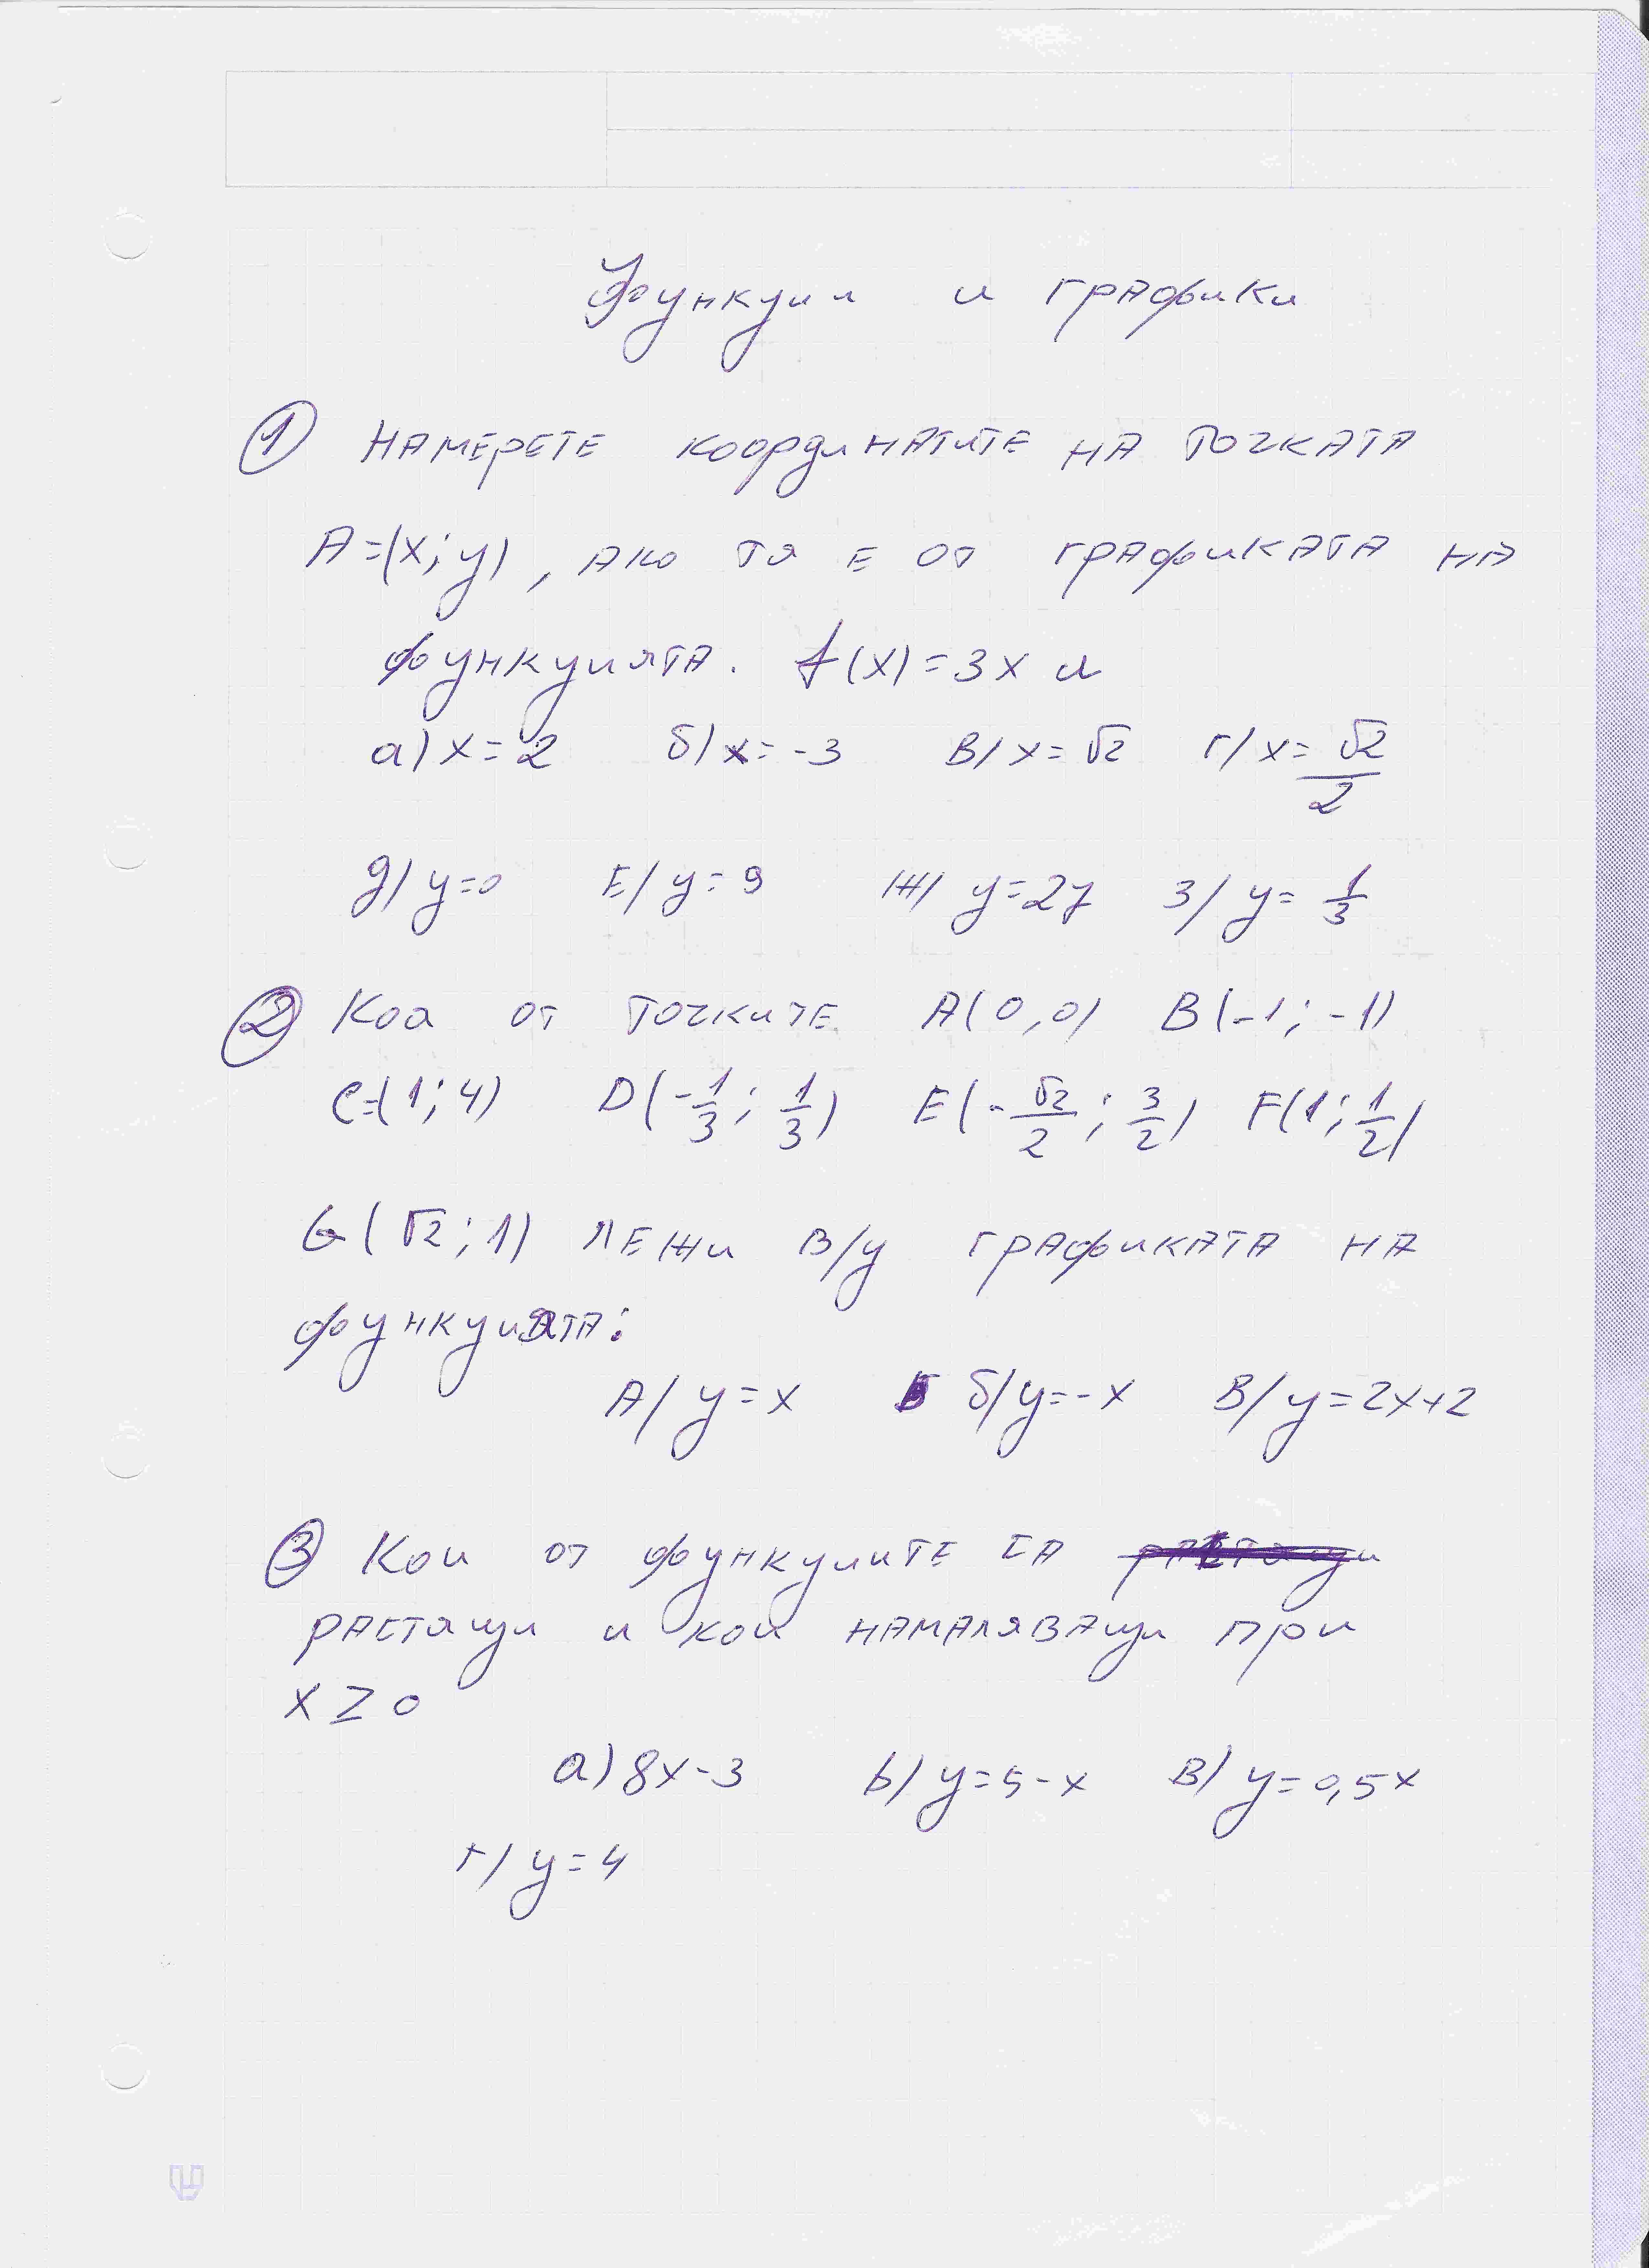 Функции и графики
① Намерете координатите на точката
A=(x;y), ако тя е от графиката на
функцията. f(x)=3x и
а) x=2 б/ x=-3 в/ x=√2 г/ x=√2/2
д/ y=0 е/ y=9 ж/ y=27 з/ y=1/3
② Коя от точките A(0,0) B(-1;-1)
C=(1;4) D(-1/3; 1/3) E(-√2/2; 3/2) F(1; 1/2)
G(√2;1) лежи в/у графиката на
функцията:
А/ y=x б/ y=-x В/ y=2x+2
③ Кои от функциите са
растящи и кои намаляващи при
x≥0
а) 8x-3 b/ y=5-x В/ y=0,5x
г/ y=4